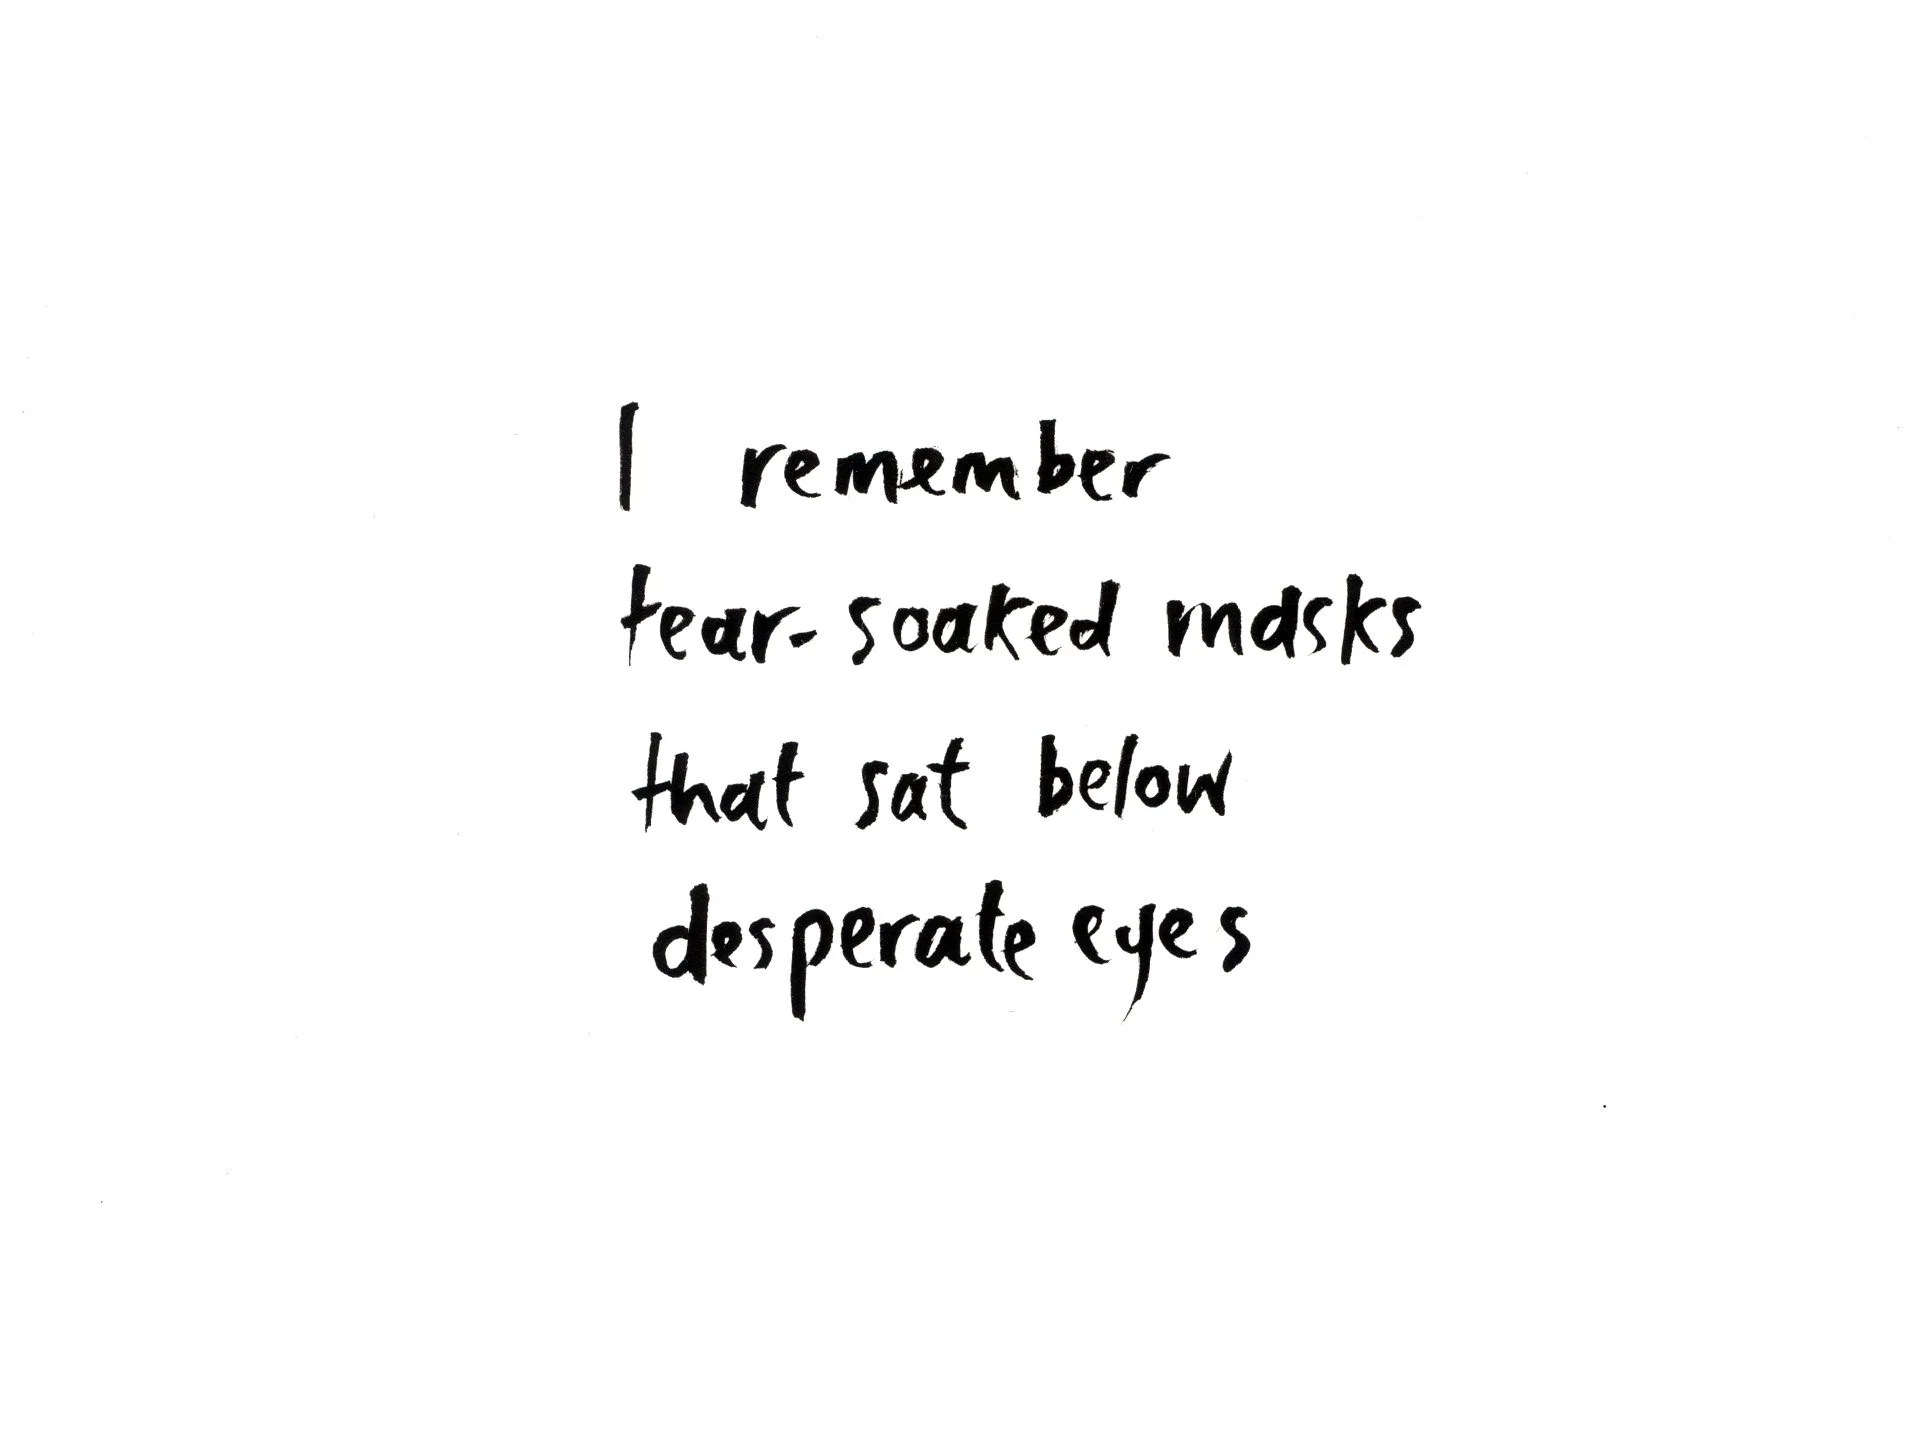 I remember
tear-soaked masks
that sat below
desperate eyes